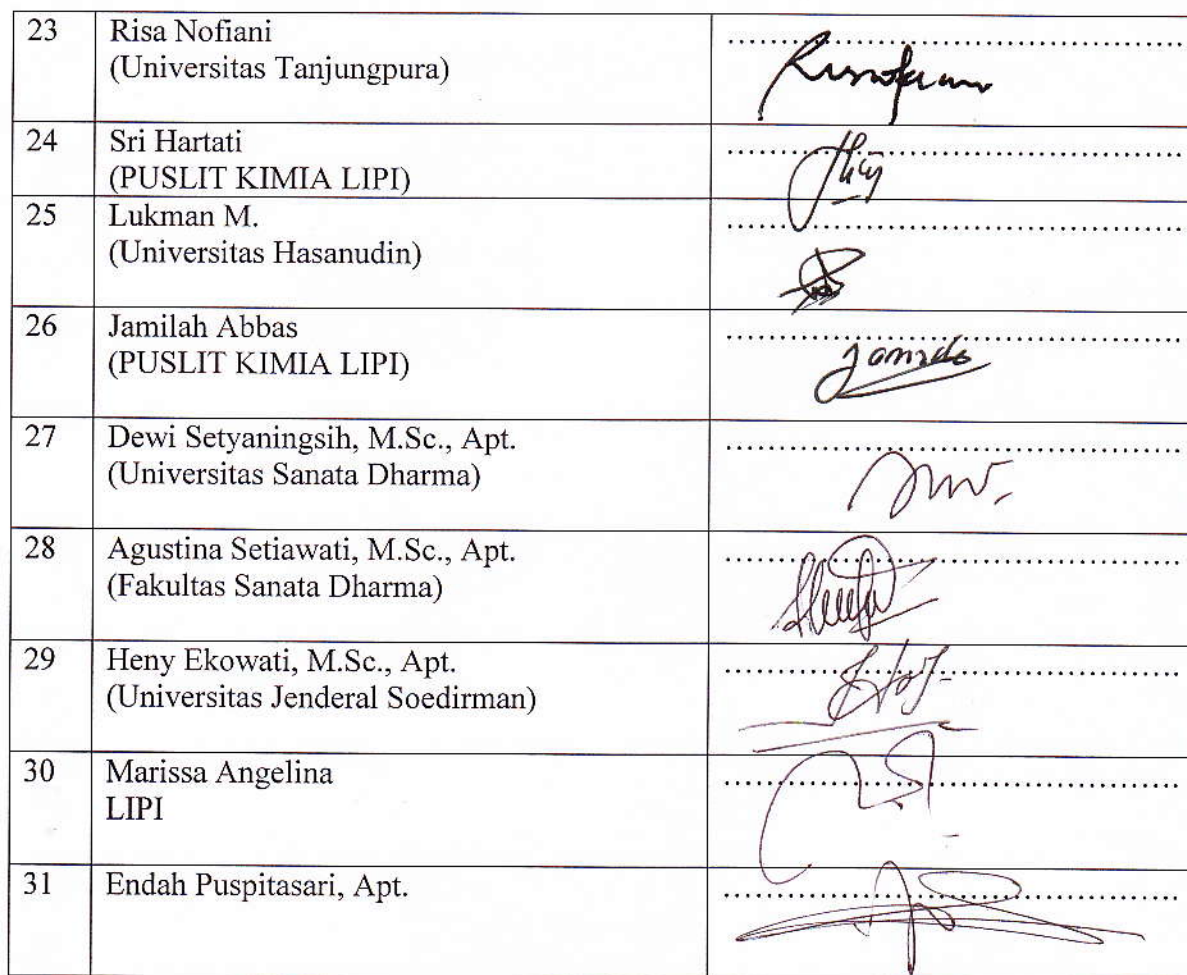 23 Risa Nofiani
(Universitas Tanjungpura)
24 Sri Hartati
(PUSLIT KIMIA LIPI)
25 Lukman M.
(Universitas Hasanudin)
26 Jamilah Abbas
(PUSLIT KIMIA LIPI)
27 Dewi Setyaningsih, M.Sc., Apt.
(Universitas Sanata Dharma)
28 Agustina Setiawati, M.Sc., Apt.
(Fakultas Sanata Dharma)
29 Heny Ekowati, M.Sc., Apt.
(Universitas Jenderal Soedirman)
30 Marissa Angelina
LIPI
31 Endah Puspitasari, Apt.